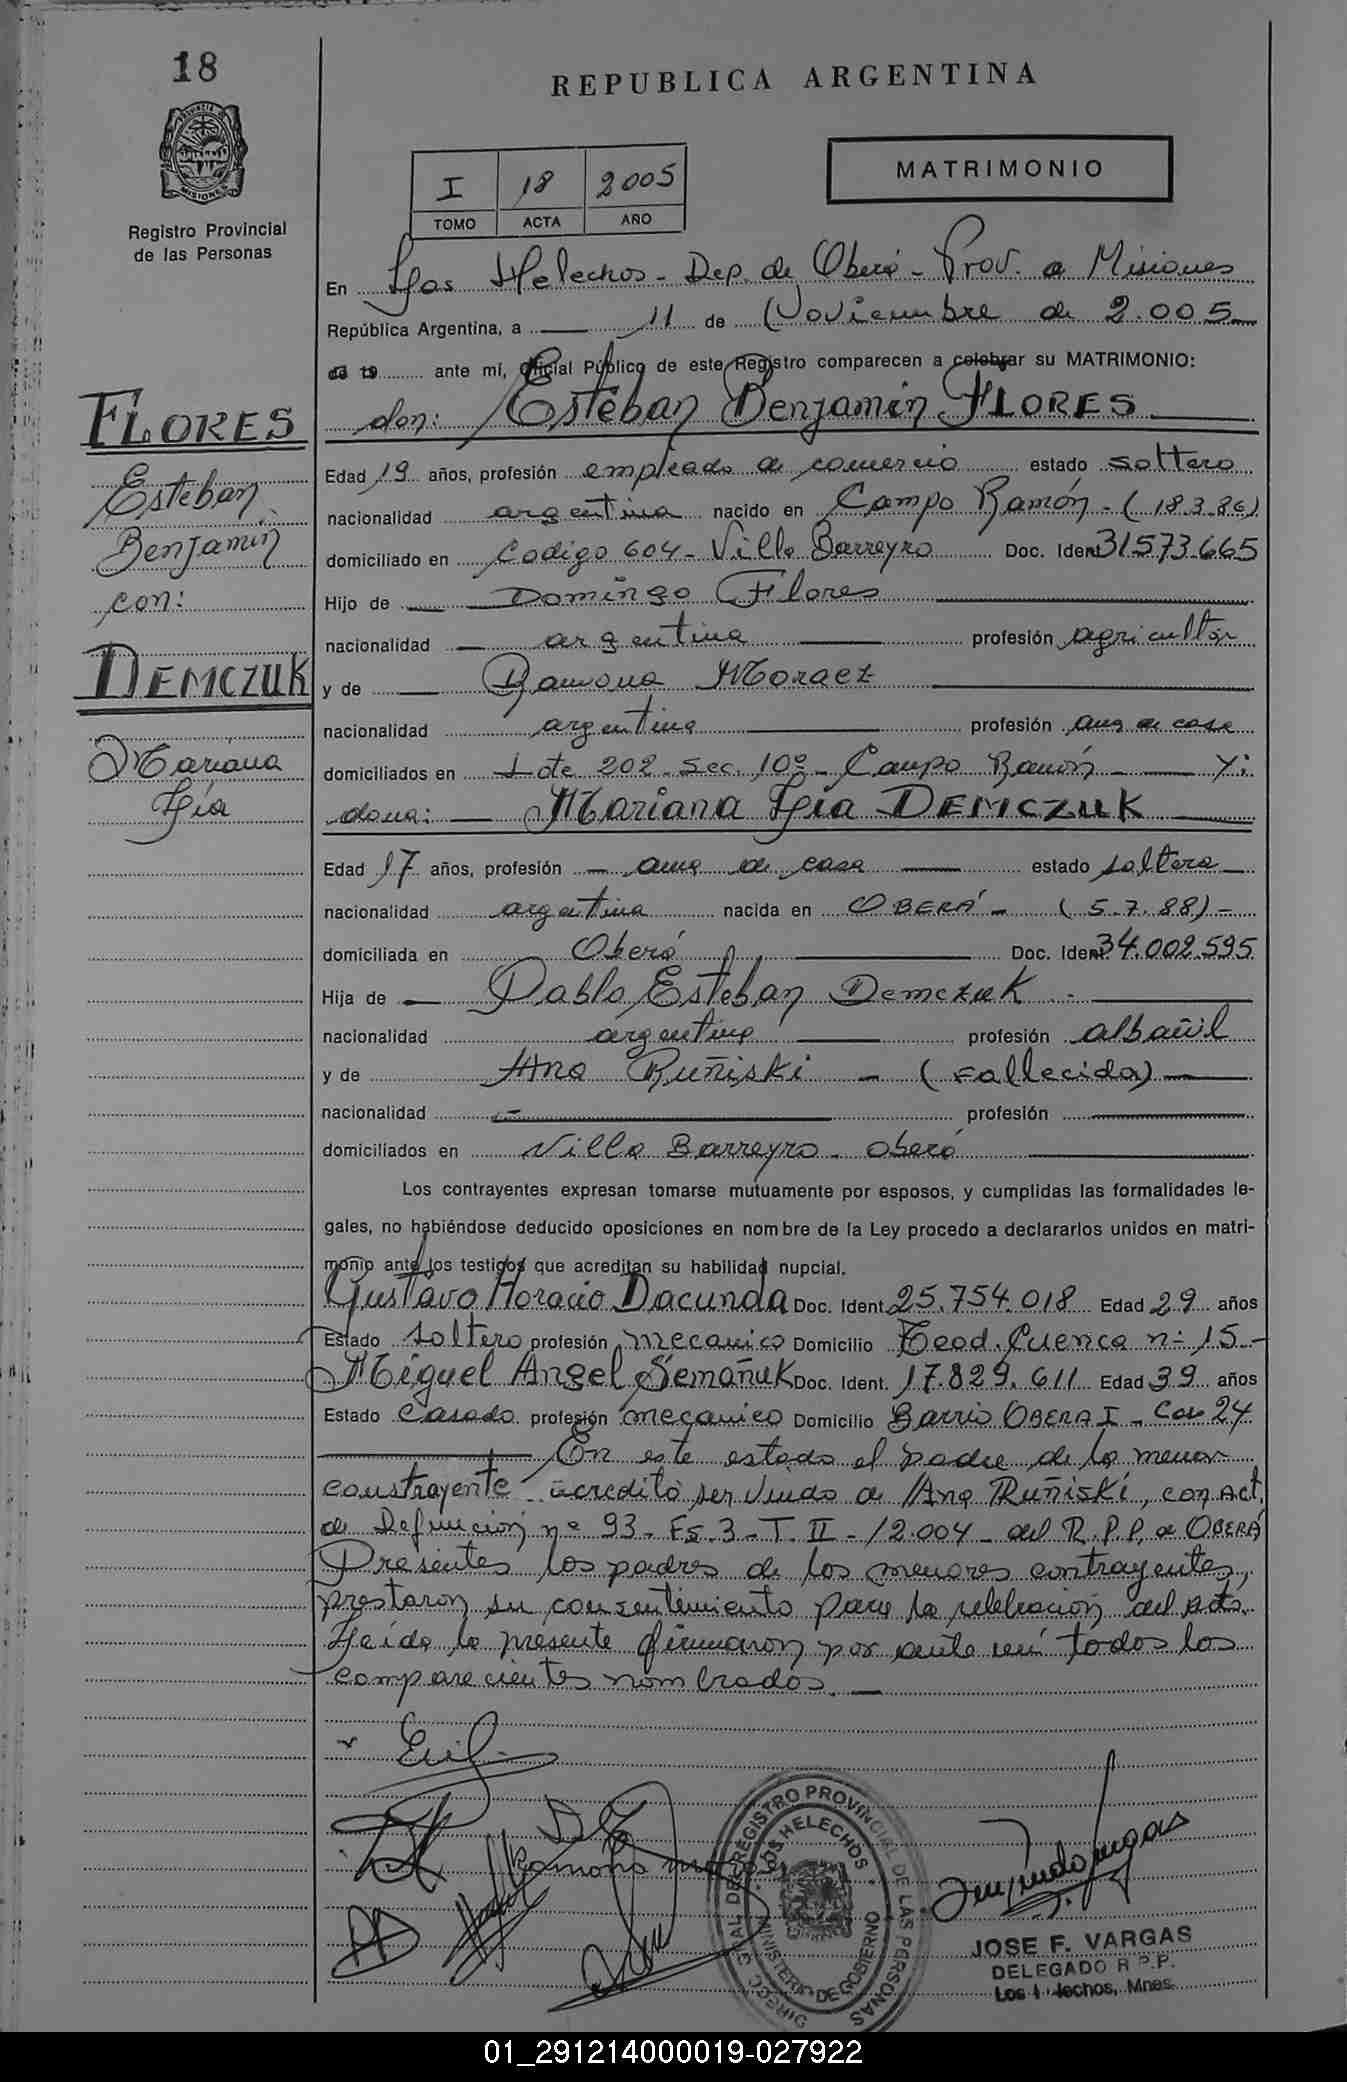 18
REPUBLICA ARGENTINA
MATRIMONIO
PROVINCIA DE MISIONES
Registro Provincial
de las Personas
I 18 2005
TOMO ACTA AÑO
En Los Helechos - Dep. de Oberá - Prov. de Misiones
República Argentina, a 11 de Noviembre de 2.005
de 19 ante mí, Oficial Público de este Registro comparecen a celebrar su MATRIMONIO:
don: Esteban Benjamín FLORES
Edad 19 años, profesión empleado de comercio estado soltero
nacionalidad argentina nacido en Campo Ramón - (18.3.86)
domiciliado en Codigo 604 - Villa Barreyro Doc. Ident. 31573.665
Hijo de Domingo Flores
nacionalidad argentina profesión agricultor
y de Ramona Moraez
nacionalidad argentina profesión ama de casa
domiciliados en Lote 202 - Sec. 10º - Campo Ramón - Y:
doña: Mariana Lía DEMCZUK
Edad 17 años, profesión ama de casa estado soltera
nacionalidad argentina nacida en OBERÁ - (5.7.88) -
domiciliada en Oberá Doc. Ident. 34.002.595
Hija de Pablo Esteban Demczuk
nacionalidad argentina profesión albañil
y de Ana Ruñiski - (Fallecida)
nacionalidad profesión
domiciliados en Villa Barreyro - Oberá
Los contrayentes expresan tomarse mutuamente por esposos, y cumplidas las formalidades le-
gales, no habiéndose deducido oposiciones en nombre de la Ley procedo a declararlos unidos en matri-
monio ante los testigos que acreditan su habilidad nupcial.
Gustavo Horacio Dacunda Doc. Ident. 25.754.018 Edad 29 años
Estado soltero profesión mecanico Domicilio Teod. Cuenca nº 15 -
Miguel Angel Semañuk Doc. Ident. 17.829.611 Edad 39 años
Estado Casado profesión mecanico Domicilio Barrio OBERA I - Casa 24
En este estado el padre de la menor
constrayente acreditó ser viudo de Ana Ruñiski, con Act.
de Defunción nº 93 - Fs. 3 - T. II - /2.004 - del R.P.P. de OBERÁ
Presentes los padres de los menores contrayentes,
prestaron su consentimiento para la celebración del acto.
Leída la presente firmaron por ante mí todos los
comparecientes nombrados.
FLORES
Esteban
Benjamín
con:
DEMCZUK
Mariana
Lía
Ramona
DIRECC. GRAL. DEL REGISTRO PROVINCIAL DE LAS PERSONAS
LOS HELECHOS
MINISTERIO DE GOBIERNO
JOSE F. VARGAS
DELEGADO R.P.P.
Los Helechos, Mnes.
01_291214000019-027922